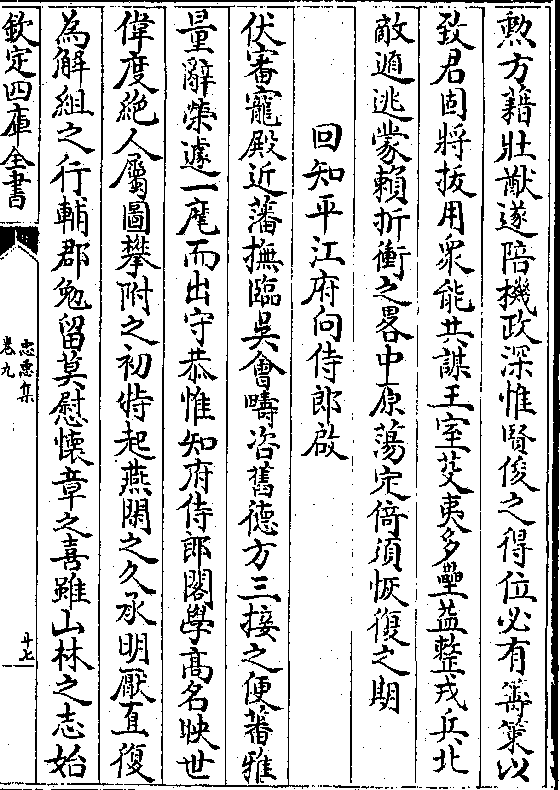 勲方藉壯猷遂陪機政深惟賢俊之得位必有籌策以
致君固將拔用衆能共謀王室芟夷多壘益整戎兵北
敵遁逃蒙賴折衝之畧中原蕩定倚須恢復之期
回知平江府向侍郎啟
伏審寵殿近藩撫臨吳會疇咨舊德方三接之便蕃雅
量辭榮遽一麾而出守恭惟知府侍郎閣學髙名映世
偉度絶人屬圖攀附之初特起燕閒之久承明厭直復
為解組之行輔郡勉留莫慰懷章之喜雖山林之志始
欽定四庫全書
忠惠集
卷九
十七